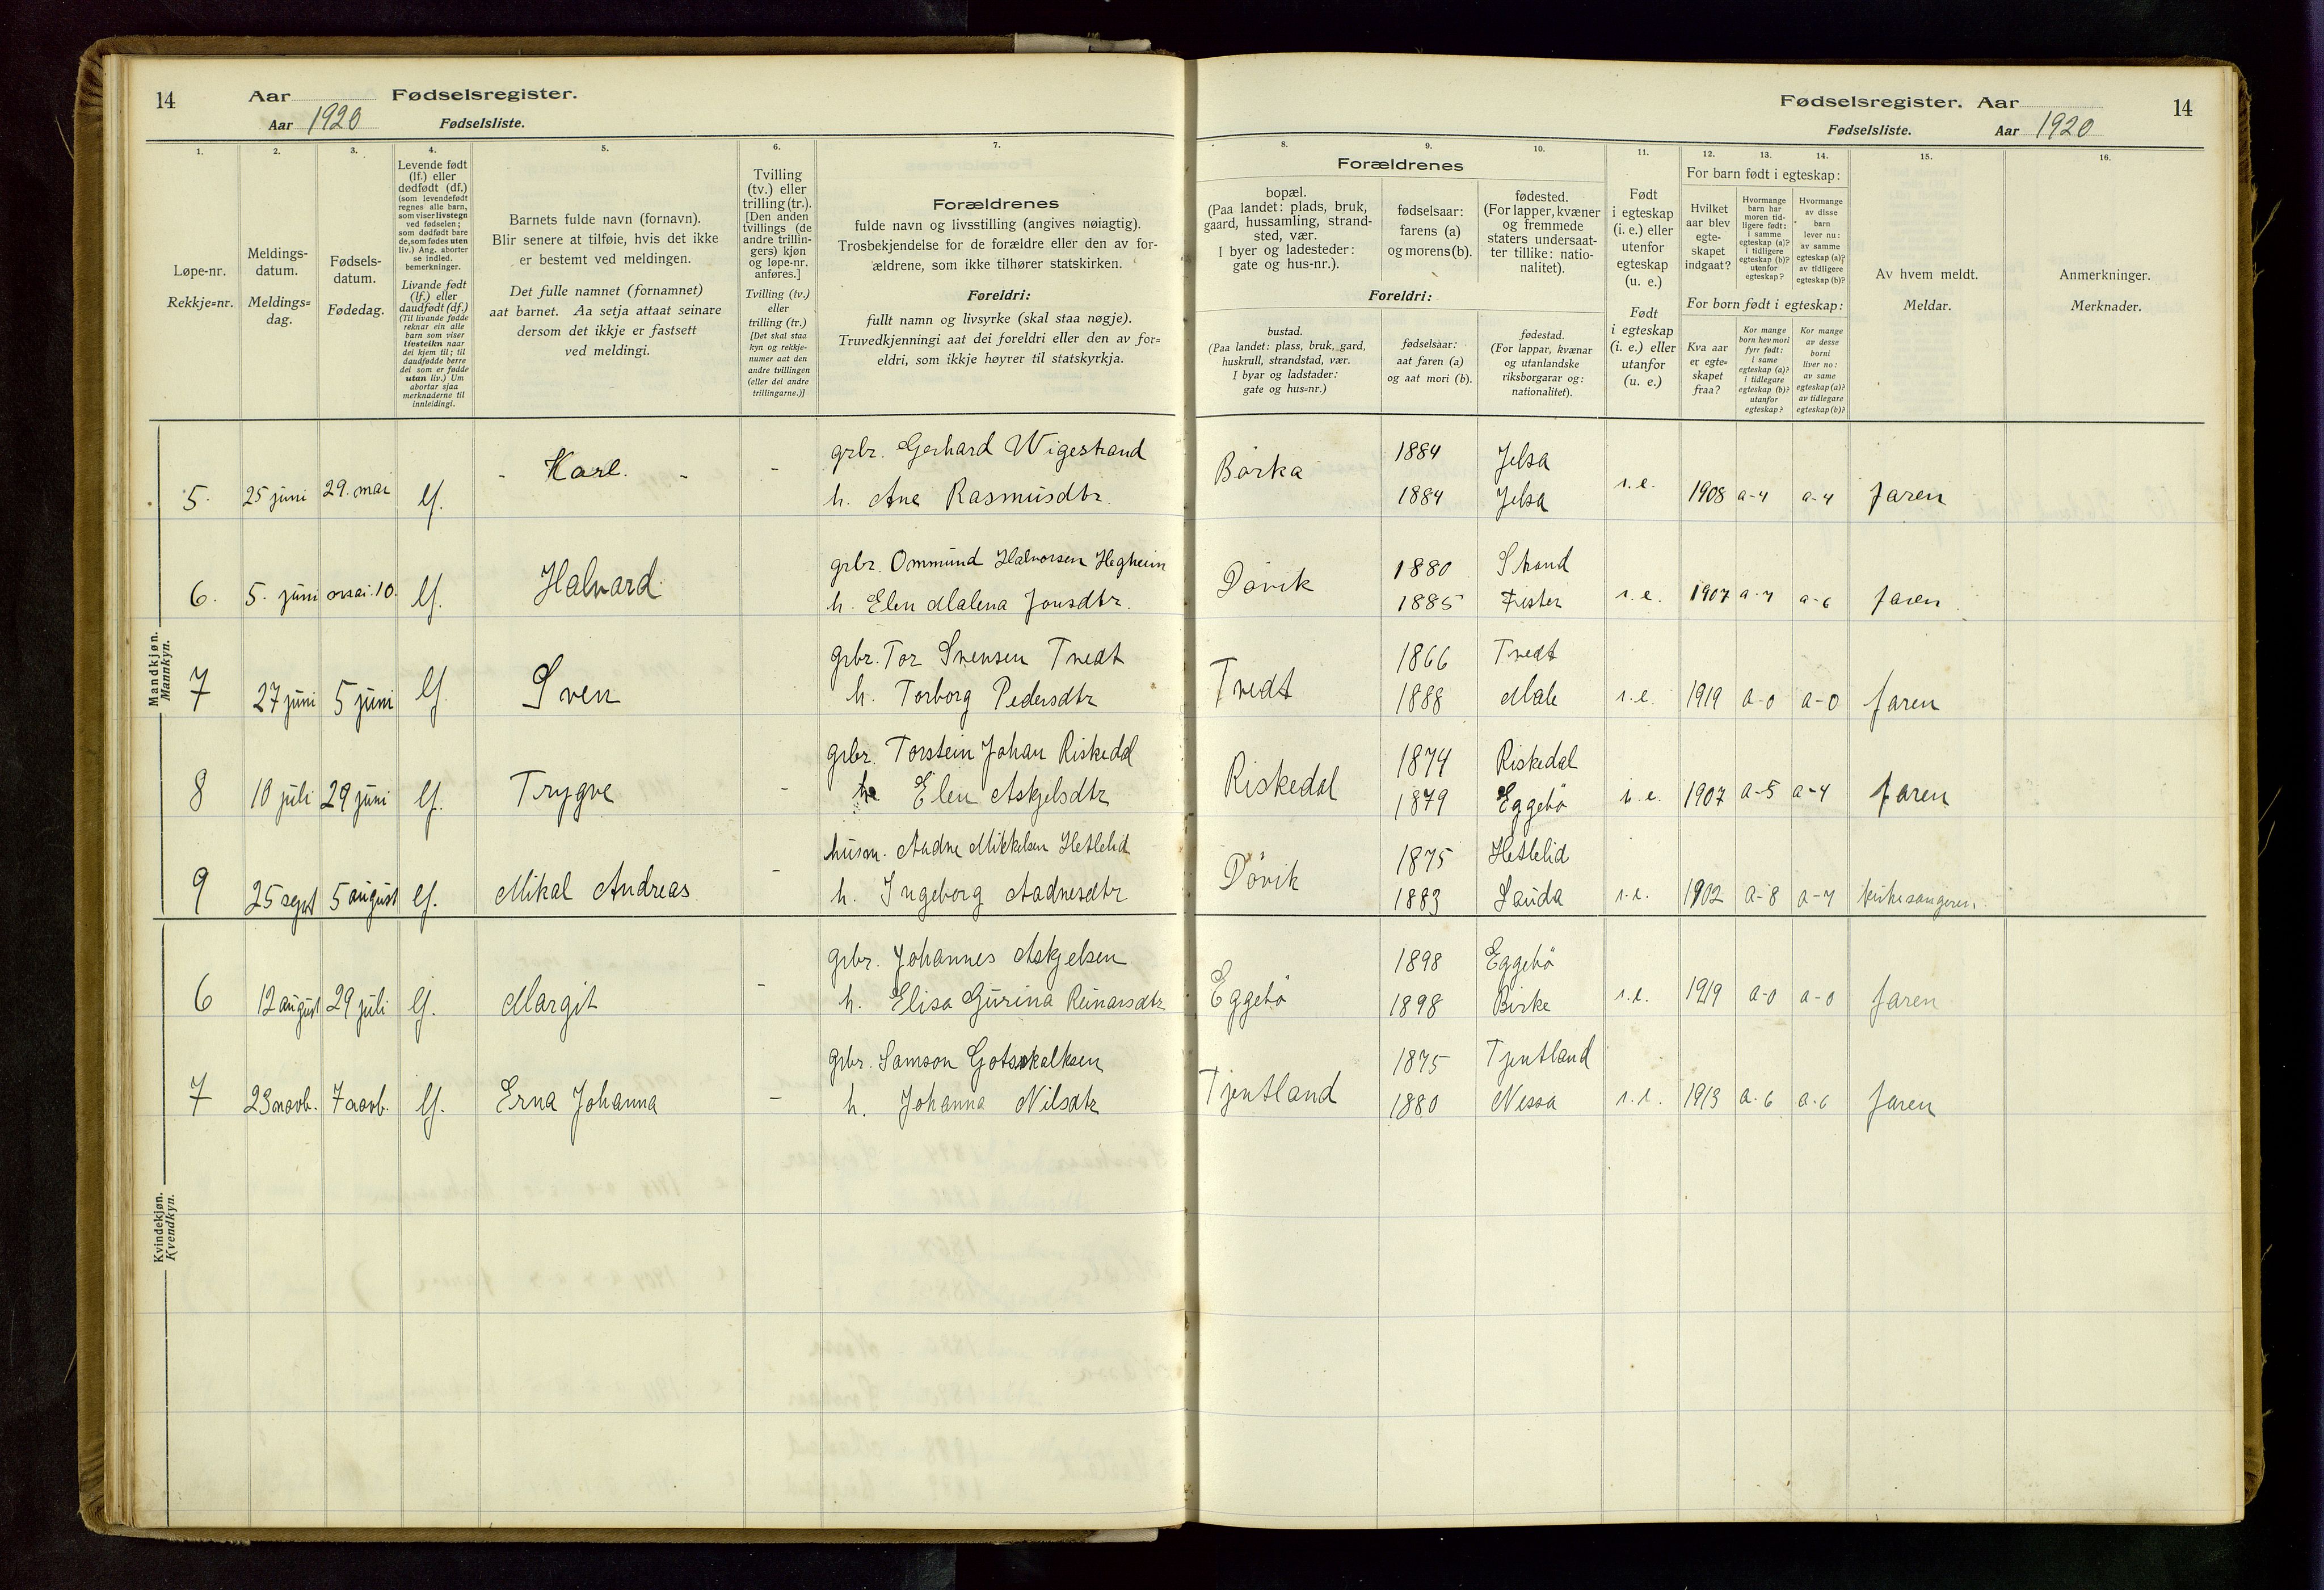 14 Aar Fødselsregister.
Aar 1920 Fødselsliste.
Fødselsregister. Aar 14
Fødselsliste. Aar 1920
1. 2. 3. 4. 5. 6. 7. 8. 9. 10. 11. 12. 13. 14. 15. 16.
Løpe-nr.
Rekkje=nr.
Meldings-
datum.
Meldings=
dag.
Fødsels-
datum.
Fødedag.
Levende født
(lf.) eller
dødfødt (df.)
(som levendefødt
regnes alle barn,
som viser livstegn
ved fødselen;
som dødfødt bare
de, som fødes uten
liv.) Ang. aborter
se indled.
bemerkninger.
Livande født
(lf.) eller
daudfødt (df.)
(Til livande fødde
reknar ein alle
barn som viser
livsteikn naar
dei kjem til; til
daudfødde berre
dei som er fødde
utan liv.) Um
abortar sjaa
merknaderne til
innleidingi.
Barnets fulde navn (fornavn).
Blir senere at tilføie, hvis det ikke
er bestemt ved meldingen.
Det fulle namnet (fornamnet)
aat barnet. Aa setja attaat seinare
dersom det ikkje er fastsett
ved meldingi.
Tvilling
(tv.) eller
trilling (tr.).
[Den anden
tvillings (de
andre trillin-
gers) kjøn
og løpe-nr.
anføres.]
Tvilling (tv.)
eller
trilling (tr.)
[Det skal staa
kyn og rekkje-
numer aat den
andre tvillingen
(eller dei andre
trillingarne.)]
Forældrenes
fulde navn og livsstilling (angives nøiagtig).
Trosbekjendelse for de forældre eller den av for-
ældrene, som ikke tilhører statskirken.
Foreldri:
fullt namn og livsyrke (skal staa nøgje).
Truvedkjenningi aat dei foreldri eller den av for=
eldri, som ikkje høyrer til statskyrkja.
Forældrenes
bopæl.
(Paa landet: plads, bruk,
gaard, hussamling, strand-
sted, vær.
I byer og ladesteder:
gate og hus-nr.).
fødselsaar:
farens (a)
og morens (b).
fødested.
(For lapper, kvæner
og fremmede
staters undersaat-
ter tillike: natio-
nalitet).
Foreldri:
bustad.
(Paa landet: plass, bruk, gard,
huskrull, strandstad, vær.
I byar og ladstader:
gate og hus-nr.)
fødselsaar:
aat faren (a)
og aat mori (b).
fødestad.
(For lappar, kvænar
og utanlandske
riksborgarar og:
nationalitet).
Født
i egteskap
(i. e.) eller
utenfor
egteskap
(u. e.)
Født
i egteskap
(i. e.) eller
utanfor
(u. e.)
For barn født i egteskap:
Hvilket
aar blev
egte-
skapet
indgaat?
Hvormange
barn har
moren tid-
ligere født:
i samme
egteskap (a)?
i tidligere
egteskap (b)?
utenfor
egteskap?
Hvormange
av disse
barn
lever nu:
av samme
egteskap (a)?
av tidligere
egteskap (b)?
For born født i egteskap:
Kva aar
er egte=
skapet
fraa?
Kor mange
born hev mori
fyrr født:
i same
egteskap (a)?
i tidlegare
egteskap (b)?
utanfor
egteskap?
Kor mange
av desse
borni
liver no:
av same
egteskap (a)?
av tidlegare
egteskap (b)?
Av hvem meldt.
Meldar.
Anmerkninger.
Merknader.
Mandkjøn.
Mannkyn.
grbr. Gerhard Wigestrand 1884 Jelsa
5. 25 juni 29. mai lf. - Karl. - - h. Ane Rasmusdtr. Børka 1884 Jelsa i.e. 1908 a-4 a-4 faren
grbr. Ommund Halvorsen Hegheim 1880 Strand
6. 5. juni mai 10. lf. Halvard h. Elen Malena Jonsdtr. Døvik 1885 Fister i.e. 1907 a-7 a-6 faren.
grbr. Tor Svensen Tvedt 1866 Tvedt
7 27 juni 5 juni lf. Sven h. Torborg Pedersdtr Tvedt 1888 Male i.e. 1919 a-0 a-0 faren
grbr. Torstein Johan Riskedal 1874 Riskedal
8 10 juli 29 juni lf. Trygve - h. Elen Askjelsdtr Riskedal 1879 Eggebö i.e. 1907 a-5 a-4 faren
husm. Aadne Mikkelsen Hetlelid 1875 Hetlelid
9 25 sept 5 august lf. Mikal Andreas - h. Ingeborg Aadnesdtr Dövik 1883 Sauda i.e. 1902 a-8 a-7 kirkesangeren.
Kvindekjøn.
Kvendkyn.
grbr. Johannes Askjelsen 1898 Eggebö
6 12 august 29 juli lf. Margit - h. Elisa Gurina Reinarsdtr Eggebö 1898 Birke i.e. 1919 a-0 a-0 faren
grbr. Samson Gotskalksen 1875 Tjentland
7 23 novb. 7 novb. lf. Erna Johanna - h. Johanna Nilsdtr Tjentland 1880 Nessa i.e. 1913 a.6 a.6 faren